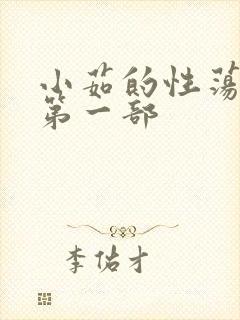 小茹的性荡
第一部
李佑才